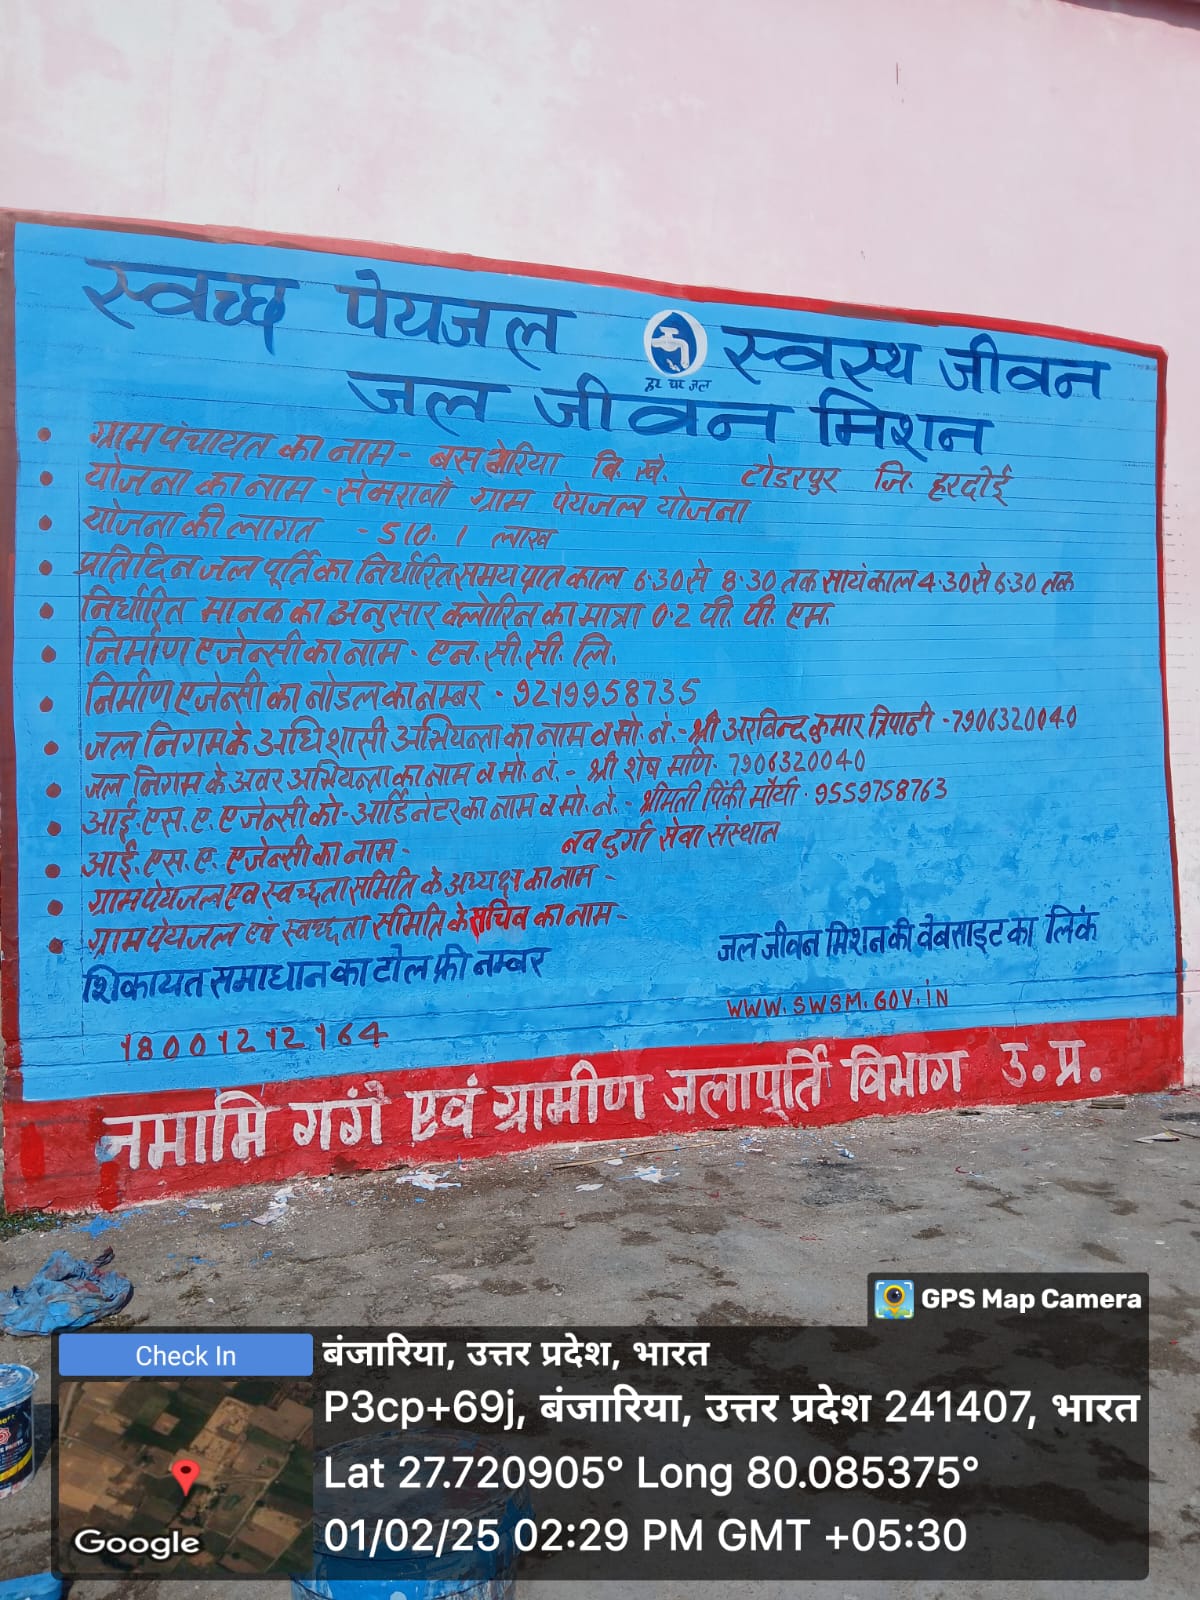 स्वच्छ पेयजल स्वस्थ जीवन
हर घर जल
जल जीवन मिशन
ग्राम पंचायत का नाम - बस मेरिया वि. ख. टोडरपुर जि. हरदोई
योजना का नाम - सेमरावाँ ग्राम पेयजल योजना
योजना की लागत - 510.1 लाख
प्रतिदिन जल पूर्ति का निर्धारित समय प्रात काल 6:30 से 8:30 तक सायं काल 4:30 से 6:30 तक
निर्धारित मानक का अनुसार क्लोरिन का मात्रा 0.2 पी. पी. एम.
निर्माण एजेन्सी का नाम - एन. सी. सी. लि.
निर्माण एजेन्सी का नोडल का नम्बर - 9219958735
जल निगम के अधिशासी अभियन्ता का नाम व मो. नं. - श्री अरविन्द कुमार त्रिपाठी - 7906320040
जल निगम के अवर अभियन्ता का नाम व मो. नं. - श्री शेष मणि - 7906320040
आई. एस. ए. एजेन्सी को-आर्डिनेटर का नाम व मो. नं. - श्रीमती पिंकी मौर्या - 9559758763
आई. एस. ए. एजेन्सी का नाम - नव दुर्गा सेवा संस्थान
ग्राम पेयजल एव स्वच्छता समिति के अध्यक्ष का नाम -
ग्राम पेयजल एवं स्वच्छता समिति के सचिव का नाम -
शिकायत समाधान का टोल फ्री नम्बर
जल जीवन मिशन की वेबसाइट का लिंक
18001212164
WWW.SWSM.GOV.iN
नमामि गंगे एवं ग्रामीण जलापूर्ति विभाग उ. प्र.
GPS Map Camera
Check In
बंजारिया, उत्तर प्रदेश, भारत
P3cp+69j, बंजारिया, उत्तर प्रदेश 241407, भारत
Lat 27.720905° Long 80.085375°
01/02/25 02:29 PM GMT +05:30
Google